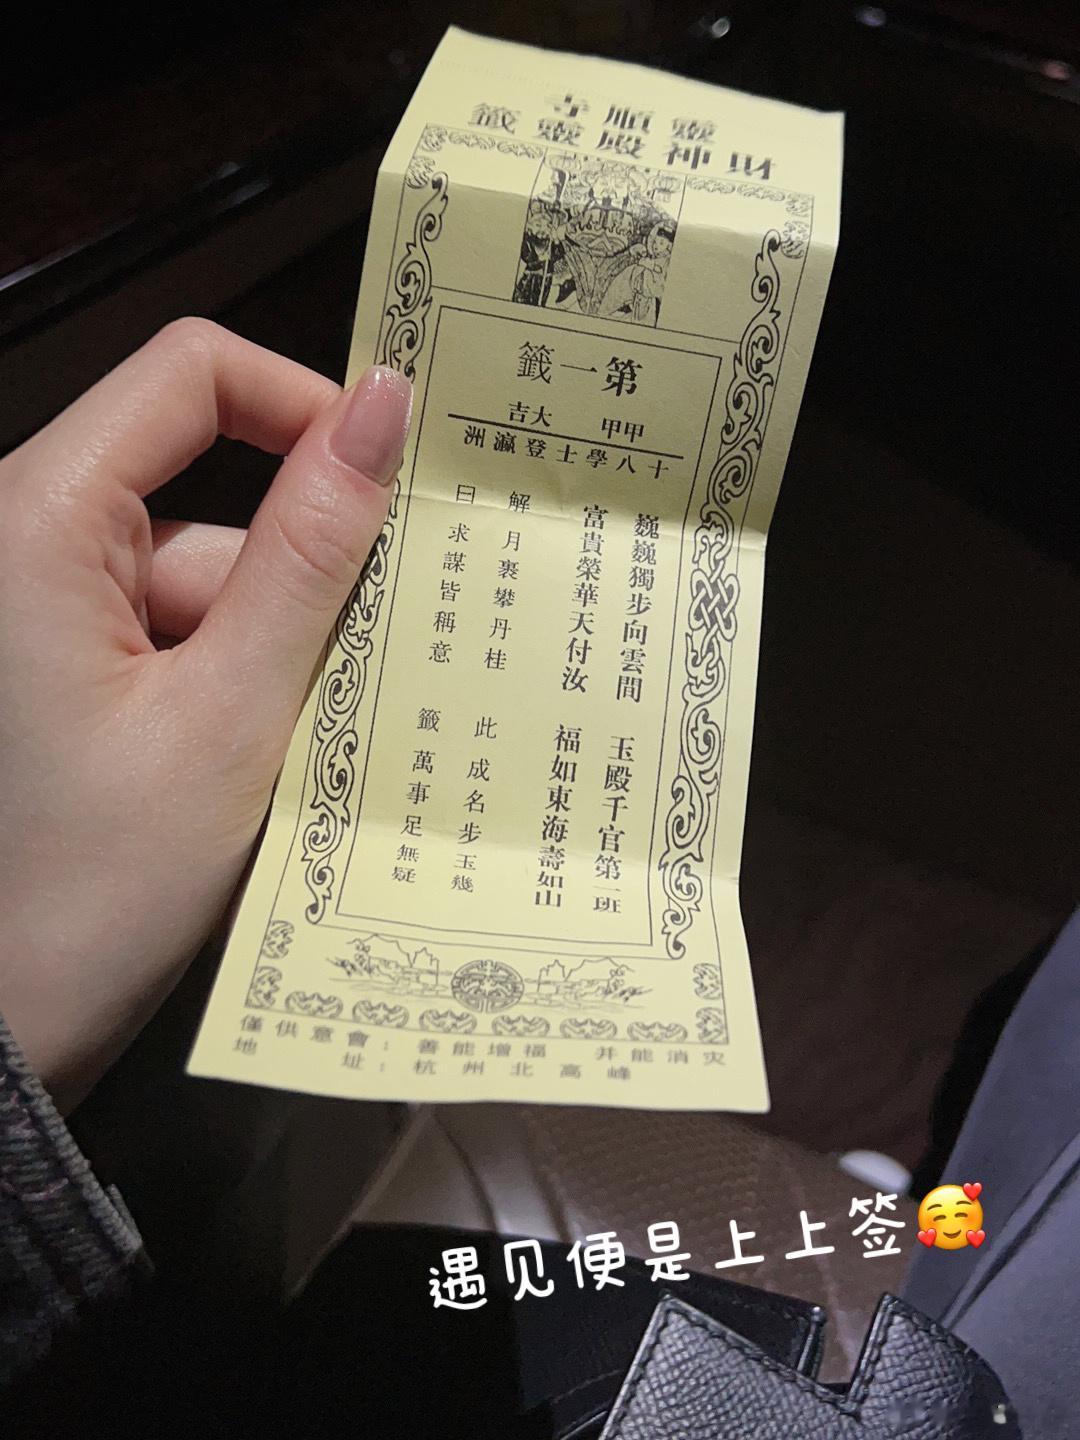 靈順寺
財神殿靈籤
第一籤
甲甲 大吉
十八學士登瀛洲
巍巍獨步向雲間 玉殿千官第一班
富貴榮華天付汝 福如東海壽如山
解 月裹攀丹桂 此 成名步玉幾
曰 求謀皆稱意 籤 萬事足無疑
僅供意會：善能增福 并能消灾
地址：杭州北高峰
遇见便是上上签🥰